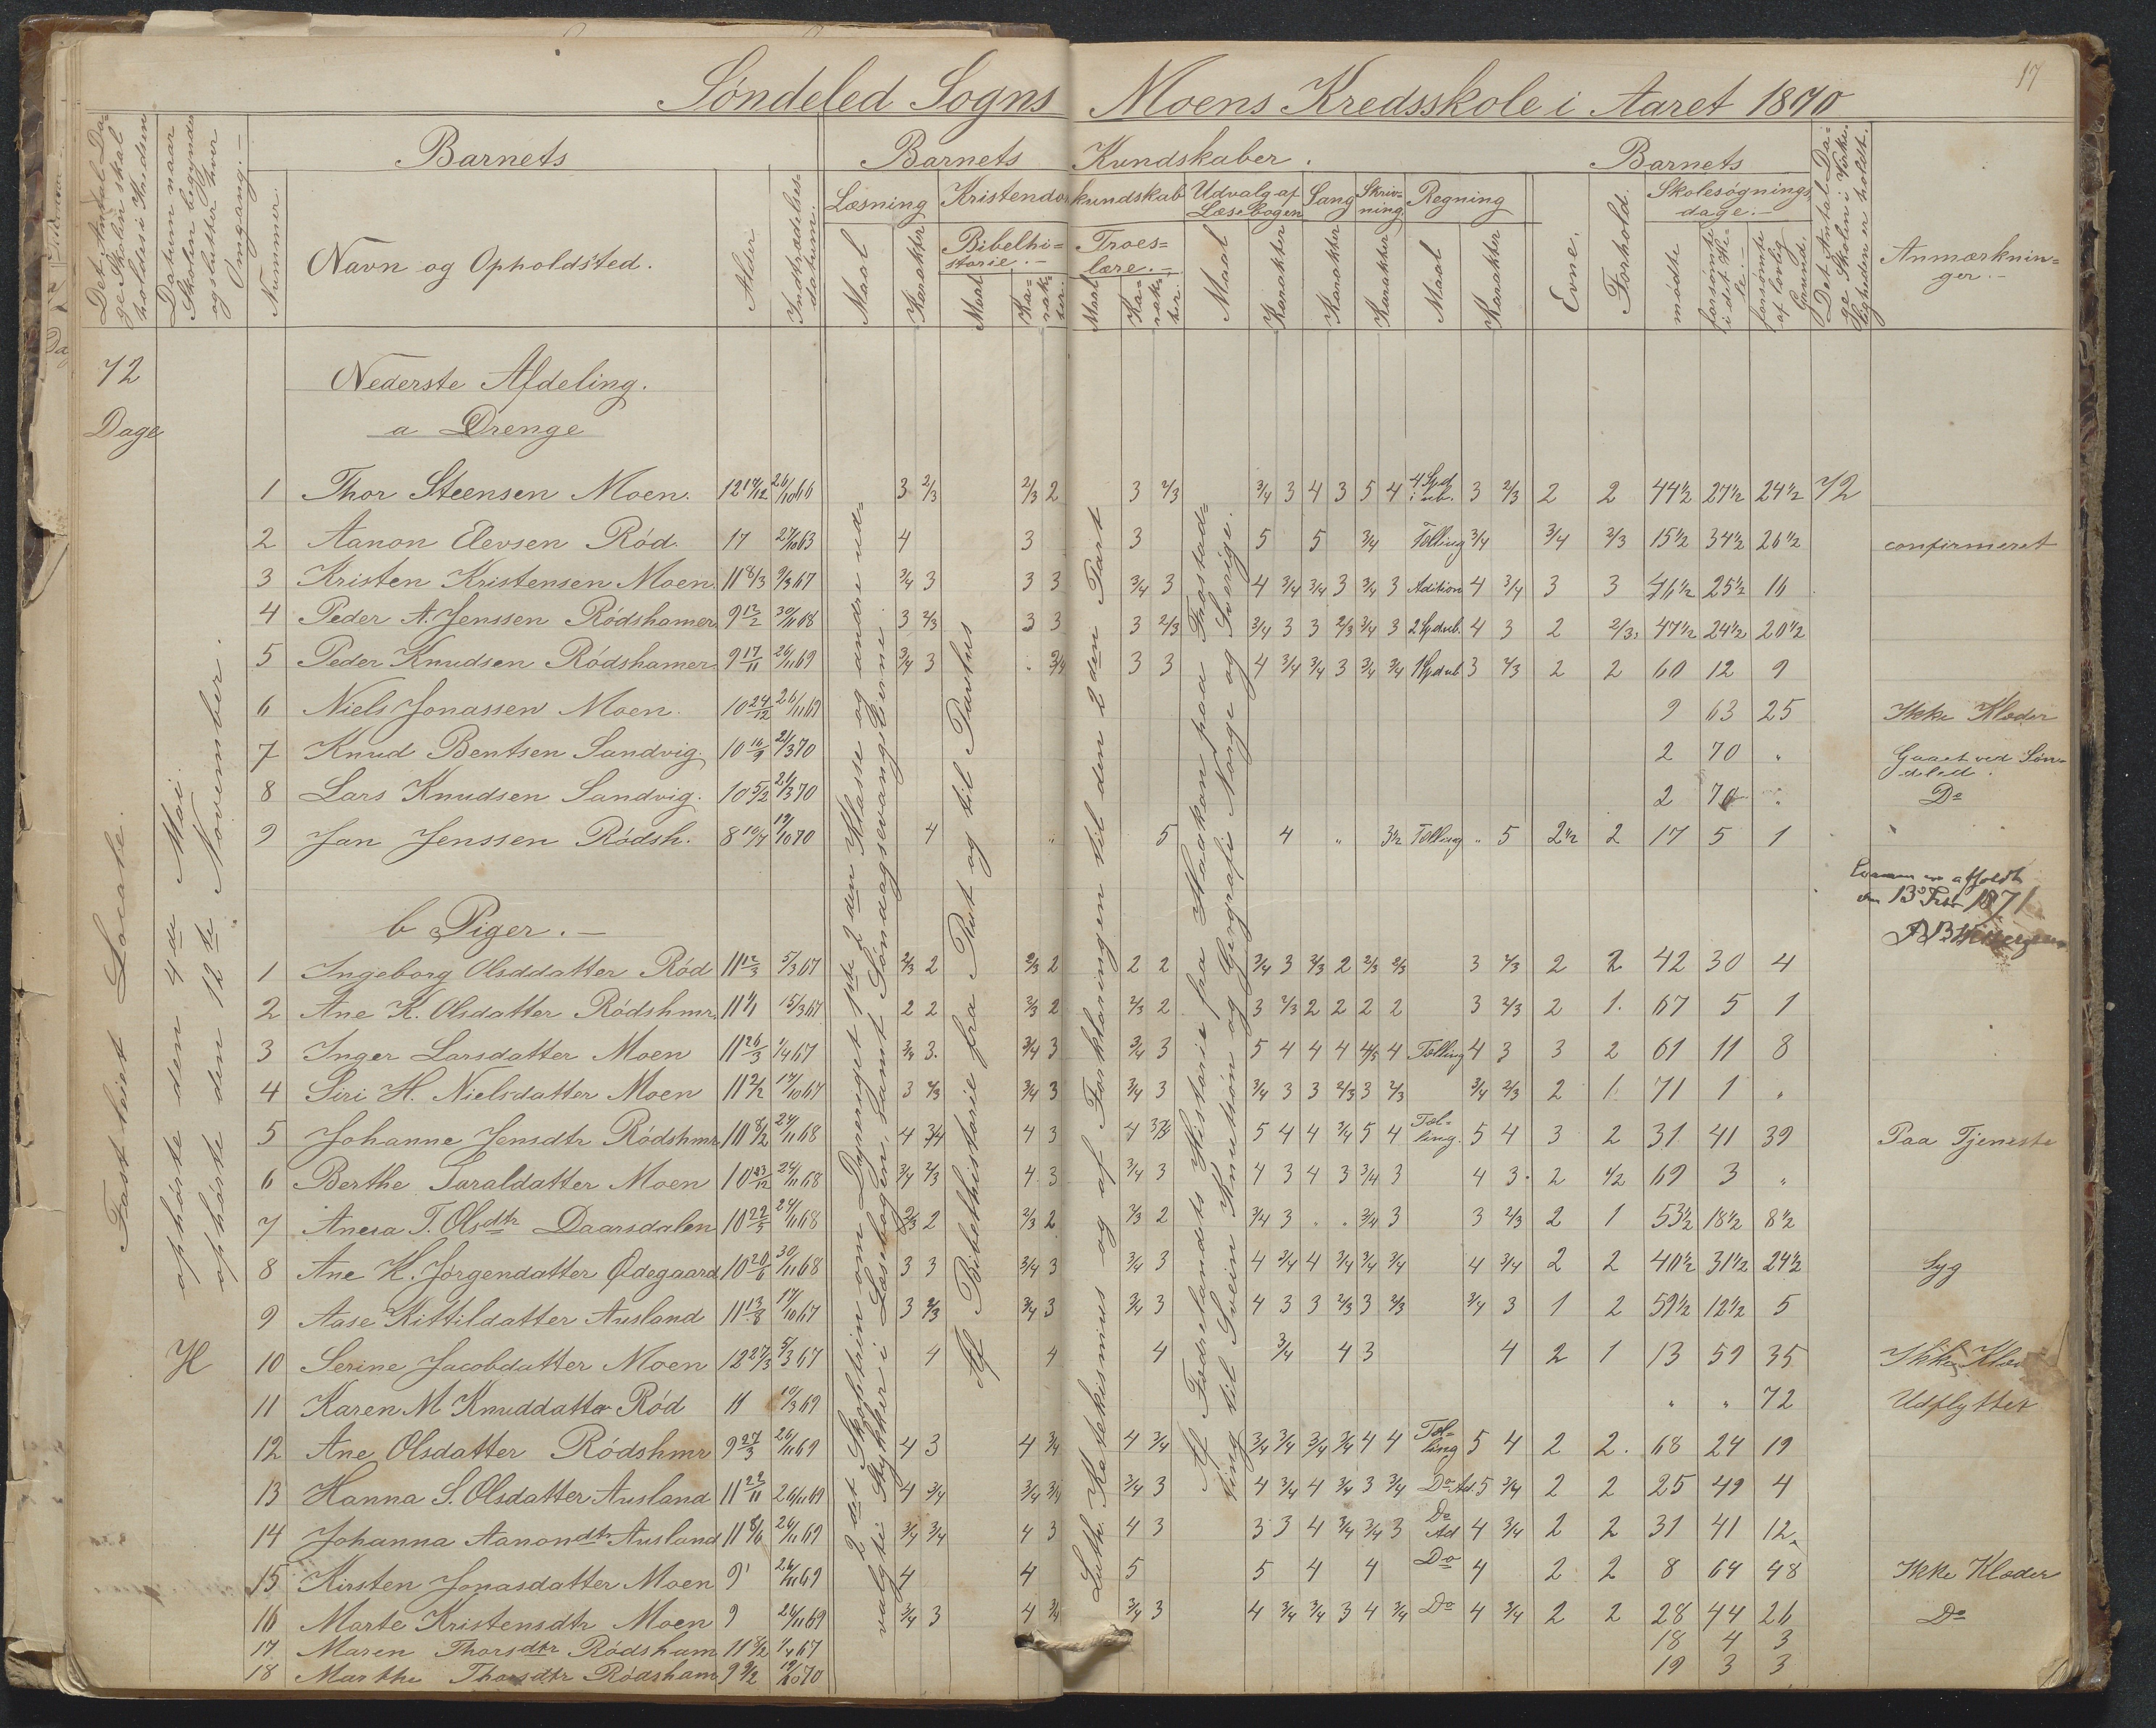 17
Søndeled Sogns Moens Kredsskole i Aaret 1870
Det Antal Dage Skolen skal holdes i Kredsen
Datum naar Skolen begynder og slutter hver Omgang.
Nummer.
Barnets
Navn og Opholdsted.
Alder
Indtrædelsesdatum.
Barnets Kundskaber.
Læsning
Maal
Karakter
Kristendomskundskab
Bibelhistorie.
Maal
Karakter.
Troeslære.
Maal
Karakter.
Udvalg af Læsebogen
Maal
Karakter
Sang
Karakter
Skrivning
Karakter
Regning
Maal
Karakter
Barnets
Evne.
Forhold.
Skolesøgningsdage.
mødte
forsømte i det Hele.
forsømte af lovlig Grund.
Det Antal Dage Skolen i Virkeligheden er holdt.
Anmærkninger.
72
Dage
Fast leiet Locale.
ophørte den 4de Mai.
ophørte den 12te November.
H
2det Skoptrin om Dyreriget 1ste 2den Klasse og andre udvalgte Stykker i Læsebogen, samt Søndagsevangelierne
Af Bibelhistorie fra Rut og til Paulus
Luth. Katekismus og af Forklaringen til den 2den Part
Af Fædrelandets Historie fra Haakon paa Frostating til Svein Knutsøn og Geografi Norge og Sverige.
Nederste Afdeling.
a Drenge
1 Thor Steensen Moen. 12 14/12 26/10 66 3 2/3 2/3 2 3 2/3 3/4 3 4 3 5 4 4 Spd. i ub. 3 2/3 2 2 44 1/2 27 1/2 24 1/2 72
2 Aanon Elevsen Rød. 17 27/10 63 4 3 3 5 5 3/4 Tælling 3/4 3/4 2/3 15 1/2 34 1/2 26 1/2 confirmeret
3 Kristen Kristensen Moen. 11 8/3 9/3 67 3/4 3 3 3 3/4 3 4 3/4 3/4 3 3/4 3 Adition 4 3/4 3 3 46 1/2 25 1/2 16
4 Peder A. Jenssen Rødshamer 9 12/2 30/11 68 3 2/3 3 3 3 2/3 3/4 3 3 2/3 3/4 3 2 Spd ub. 4 3 2 2/3 47 1/2 24 1/2 20 1/2
5 Peder Knudsen Rødshamer 9 17/11 26/11 69 3/4 3 . 3/4 3 3 4 3/4 3/4 3 3/4 3/4 1 Spd ub 3 2/3 2 2 60 12 9
6 Niels Jonassen Moen. 10 24/12 26/11 69 9 63 25 Ikke Klæder
7 Knud Bentsen Sandvig. 10 16/9 21/3 70 2 70 " Gaaet ved Søndeled.
8 Lars Knudsen Sandvig. 10 5/2 21/3 70 2 70 " Do
9 Jan Jenssen Rødsh. 8 10/7 19/10 70 4 " 5 4 " 3 1/2 Tælling " 5 2 1/2 2 17 5 1
Examen er afholdt
den 13de Febr 1871
b Piger.
1 Ingeborg Olsddatter Rød 11 12/3 5/3 67 2/3 2 2/3 2 2 2 3/4 3 2/3 2 2/3 2/3 3 2/3 2 2 42 30 4
2 Ane K. Olsdatter Rødshmr. 11 4/1 15/3 67 2 2 2/3 2 2/3 2 3 2/3 2 2 2 2 3 2/3 2 1. 67 5 1
3 Inger Larsdatter Moen 11 26/3 1/4 67 3/4 3. 3/4 3 3/4 3 5 4 4 4 4/5 4 Tælling 4 3 3 2 61 11 8
4 Siri H. Nielsdatter Moen 11 2/12 17/10 67 3 2/3 3/4 3 3/4 3 3/4 3 3 2/3 3 2/3 3/4 2/3 2 1 71 1 "
5 Johanne Jensdtr Rødshmr 10 8/2 24/11 68 4 3/4 4 3 4 3/4 5 4 4 3/4 5 4 Tælling. 5 4 3 2 31 41 39 Paa Tjeneste
6 Berthe Taraldatter Moen 10 23/12 24/11 68 3/4 2/3 4 3 3/4 3 4 3 4 3 3/4 3 4 3. 2 1/2 69 3 "
7 Anesa T. Olsdtr Daarsdalen 10 22/5 24/11 68 2/3 2 2/3 2 2/3 2 3/4 3 . . 3/4 3 3 2/3 2 1 53 1/2 18 1/2 8 1/2
8 Ane K. Jørgendatter Ødegaard 10 20/6 30/11 68 3 3 3/4 3 3/4 3 4 3/4 4 3/4 3/4 3/4 4 3/4 2 2 40 1/2 31 1/2 24 1/2 Syg
9 Aase Kittildatter Ausland 11 13/8 17/10 67 3 2/3 3/4 3 3/4 3 4 3 3 2/3 3 2/3 3/4 3 1 2 59 1/2 12 1/2 5
10 Serine Jacobdatter Moen 12 27/3 5/3 67 4 4 4 3/4 4 3 4 2 1 13 59 35 Ikke Klæ
11 Karen M Knuddatter Rød 11 10/3 69 " " 72 Udflyttet
12 Ane Olsdatter Rødshmr 9 27/3 26/11 69 4 3 4 3/4 4 3/4 3/4 3/4 3/4 3/4 4 4 Tælling 5 4 2 2. 68 24 19
13 Hanna S. Olsdatter Ausland 11 22/11 26/11 69 4 3/4 3/4 3/4 3/4 3 4 3/4 4 3/4 3 3/4 Do Ad 5 3/4 2 2 25 49 4
14 Johanna Aanondtr Ausland 11 8/6 26/11 69 3/4 3/4 4 3 4 3 3 3 4 3/4 3/4 3 Do Ad 4 3/4 2 2 31 41 12
15 Kirsten Jonasdatter Moen 9 26/11 69 4 4 5 5 4 4 Do 4 2 2 8 64 48 Ikke Klæder
16 Marte Kristensdtr Moen 9 26/11 69 3/4 3 4 3/4 3/4 3 4 3/4 3/4 3 4 3/4 Do 4 3/4 2 2 28 44 26 Do
17 Maren Thorsdtr Rødsham 11 8/2 1/4 67 18 4 3
18 Marthe Thorsdtr Rødsham 9 9/2 19/10 70 19 3 3